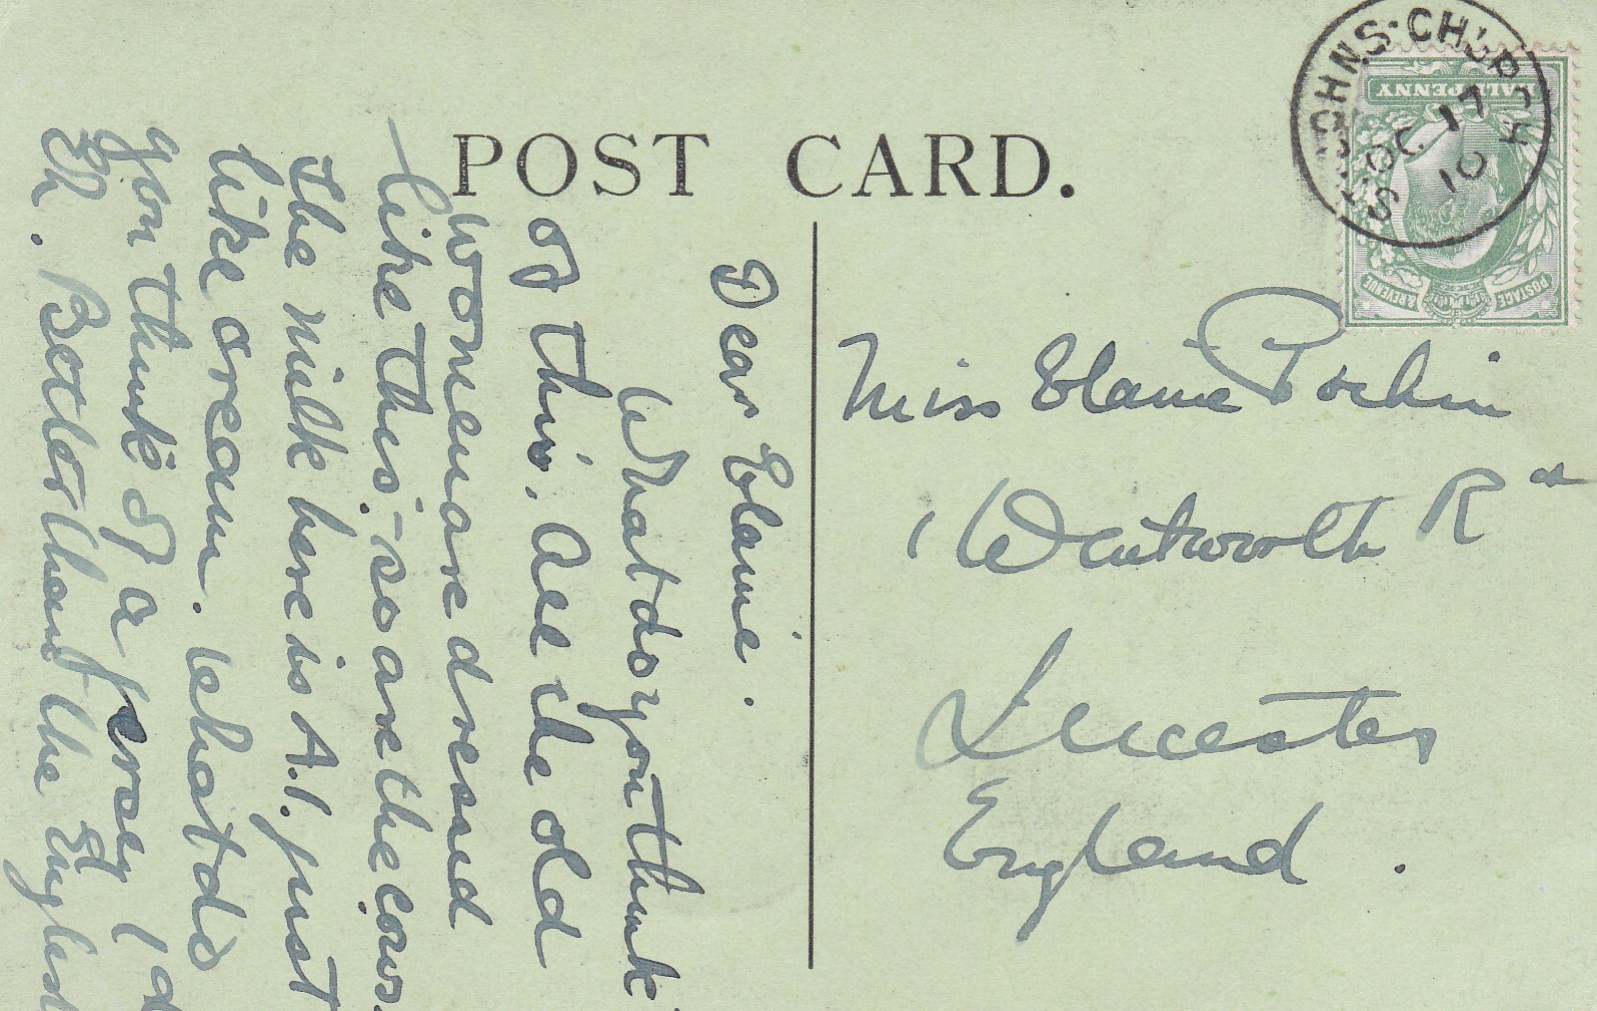 POST CARD.
Dear Elaine.
What do you think
of this. All the old
women are dressed
like this - so are the cows.
The milk here is A.1. just
like cream. What do
you think of a 1d
Eh. Better than the English
Miss Elaine Pochin
Wentworth Rd
Leicester
England.
ST. JOHNS-CHURCH
OC 17
10
HALFPENNY
POSTAGE & REVENUE